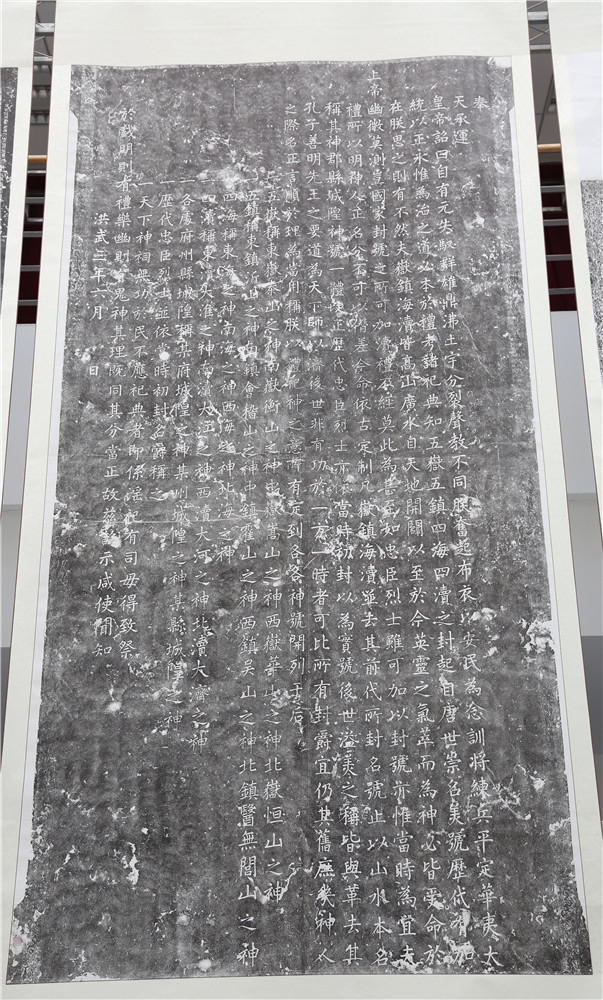 奉
天承運
皇帝詔曰自有元失馭群雄鼎沸土宇分裂聲教不同朕奮起布衣以安民為念訓將練兵平定華夷大
統以正永惟為治之道必本於禮考諸祀典知五嶽五鎮四海四瀆之封起自唐世崇名美號歷代有加
在朕思之則有不然夫嶽鎮海瀆皆高山廣水自天地開闢以至於今英靈之氣萃而為神必皆受命於
上帝幽微莫測豈國家封號之所可加瀆禮不經莫此為甚至如忠臣烈士雖可加以封號亦惟當時為宜夫
禮所以明神人正名分不可以僭差今命依古定制凡嶽鎮海瀆並去其前代所封名號止以山水本名
稱其神郡縣城隍神號一體改正歷代忠臣烈士亦依當時初封以為實號後世溢美之稱皆與革去其
孔子善明先王之要道為天下師以濟後世非有功於一方一時者可比所有封爵宜仍其舊庶幾神人
之際名正言順於理為當用稱朕以禮祀神之意所有定到各各神號開列于后
一五嶽稱東嶽泰山之神南嶽衡山之神中嶽嵩山之神西嶽華山之神北嶽恒山之神
一五鎮稱東鎮沂山之神南鎮會稽山之神中鎮霍山之神西鎮吳山之神北鎮醫無閭山之神
一四海稱東海之神南海之神西海之神北海之神
一四瀆稱東瀆大淮之神南瀆大江之神西瀆大河之神北瀆大濟之神
一各處府州縣城隍稱某府城隍之神某州城隍之神某縣城隍之神
一歷代忠臣烈士並依當時初封名爵稱之
一天下神祠無功於民不應祀典者即係淫祀有司毋得致祭
於戲明則有禮樂幽則有鬼神其理既同其分當正故茲詔示咸使聞知
洪武三年六月 日